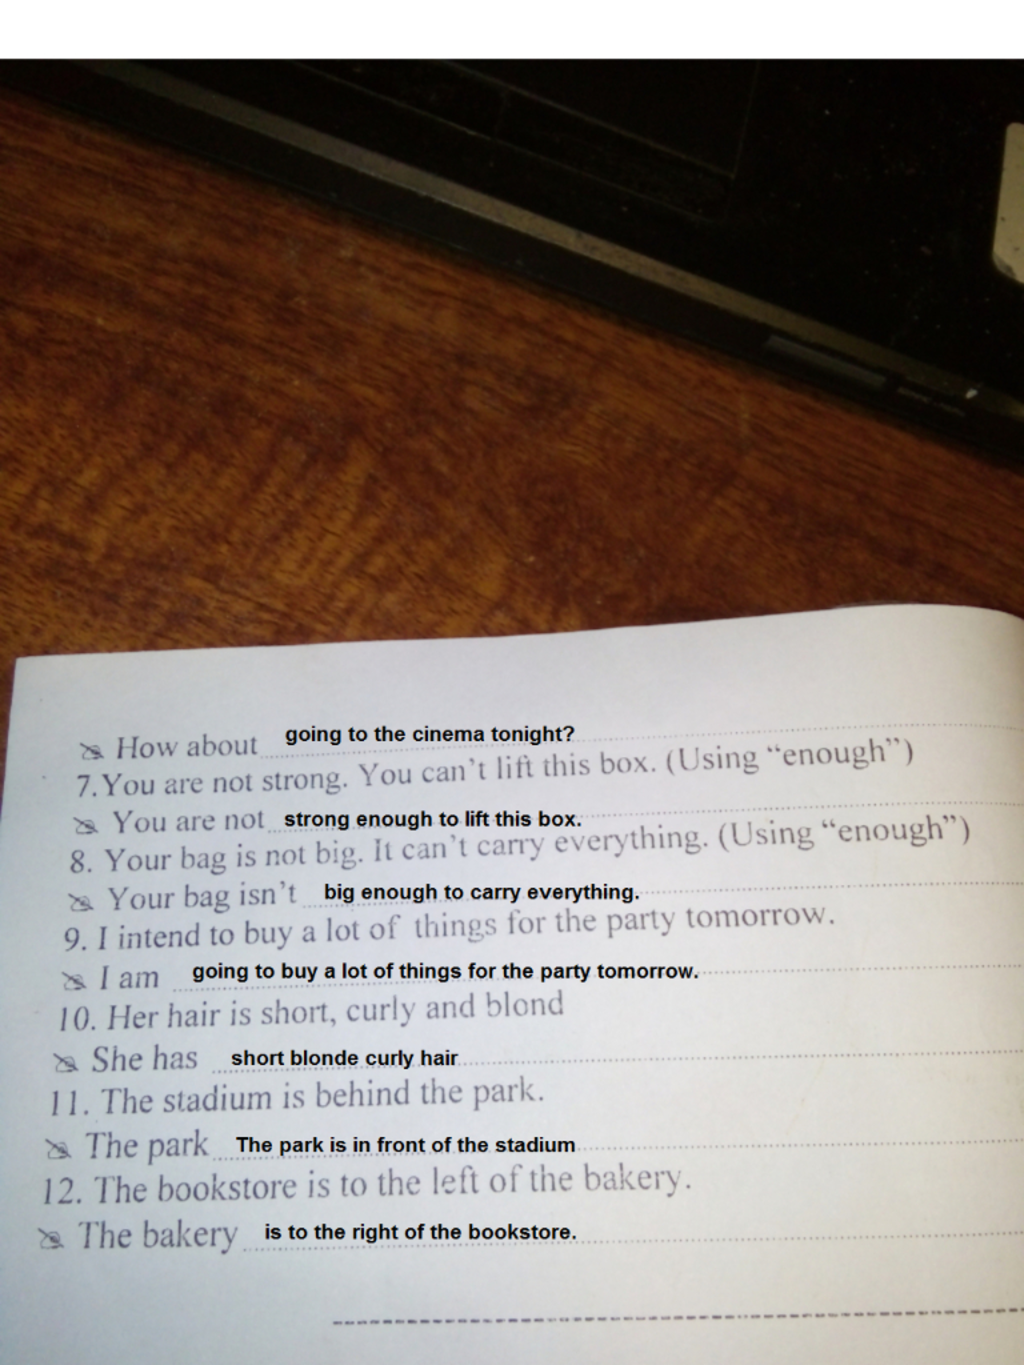 How about going to the cinema tonight?
7.You are not strong. You can't lift this box. (Using "enough")
You are not strong enough to lift this box.
8. Your bag is not big. It can't carry everything. (Using "enough")
Your bag isn't big enough to carry everything.
9. I intend to buy a lot of things for the party tomorrow.
I am going to buy a lot of things for the party tomorrow.
10. Her hair is short, curly and blond
She has short blonde curly hair
11. The stadium is behind the park.
The park The park is in front of the stadium
12. The bookstore is to the left of the bakery.
The bakery is to the right of the bookstore.